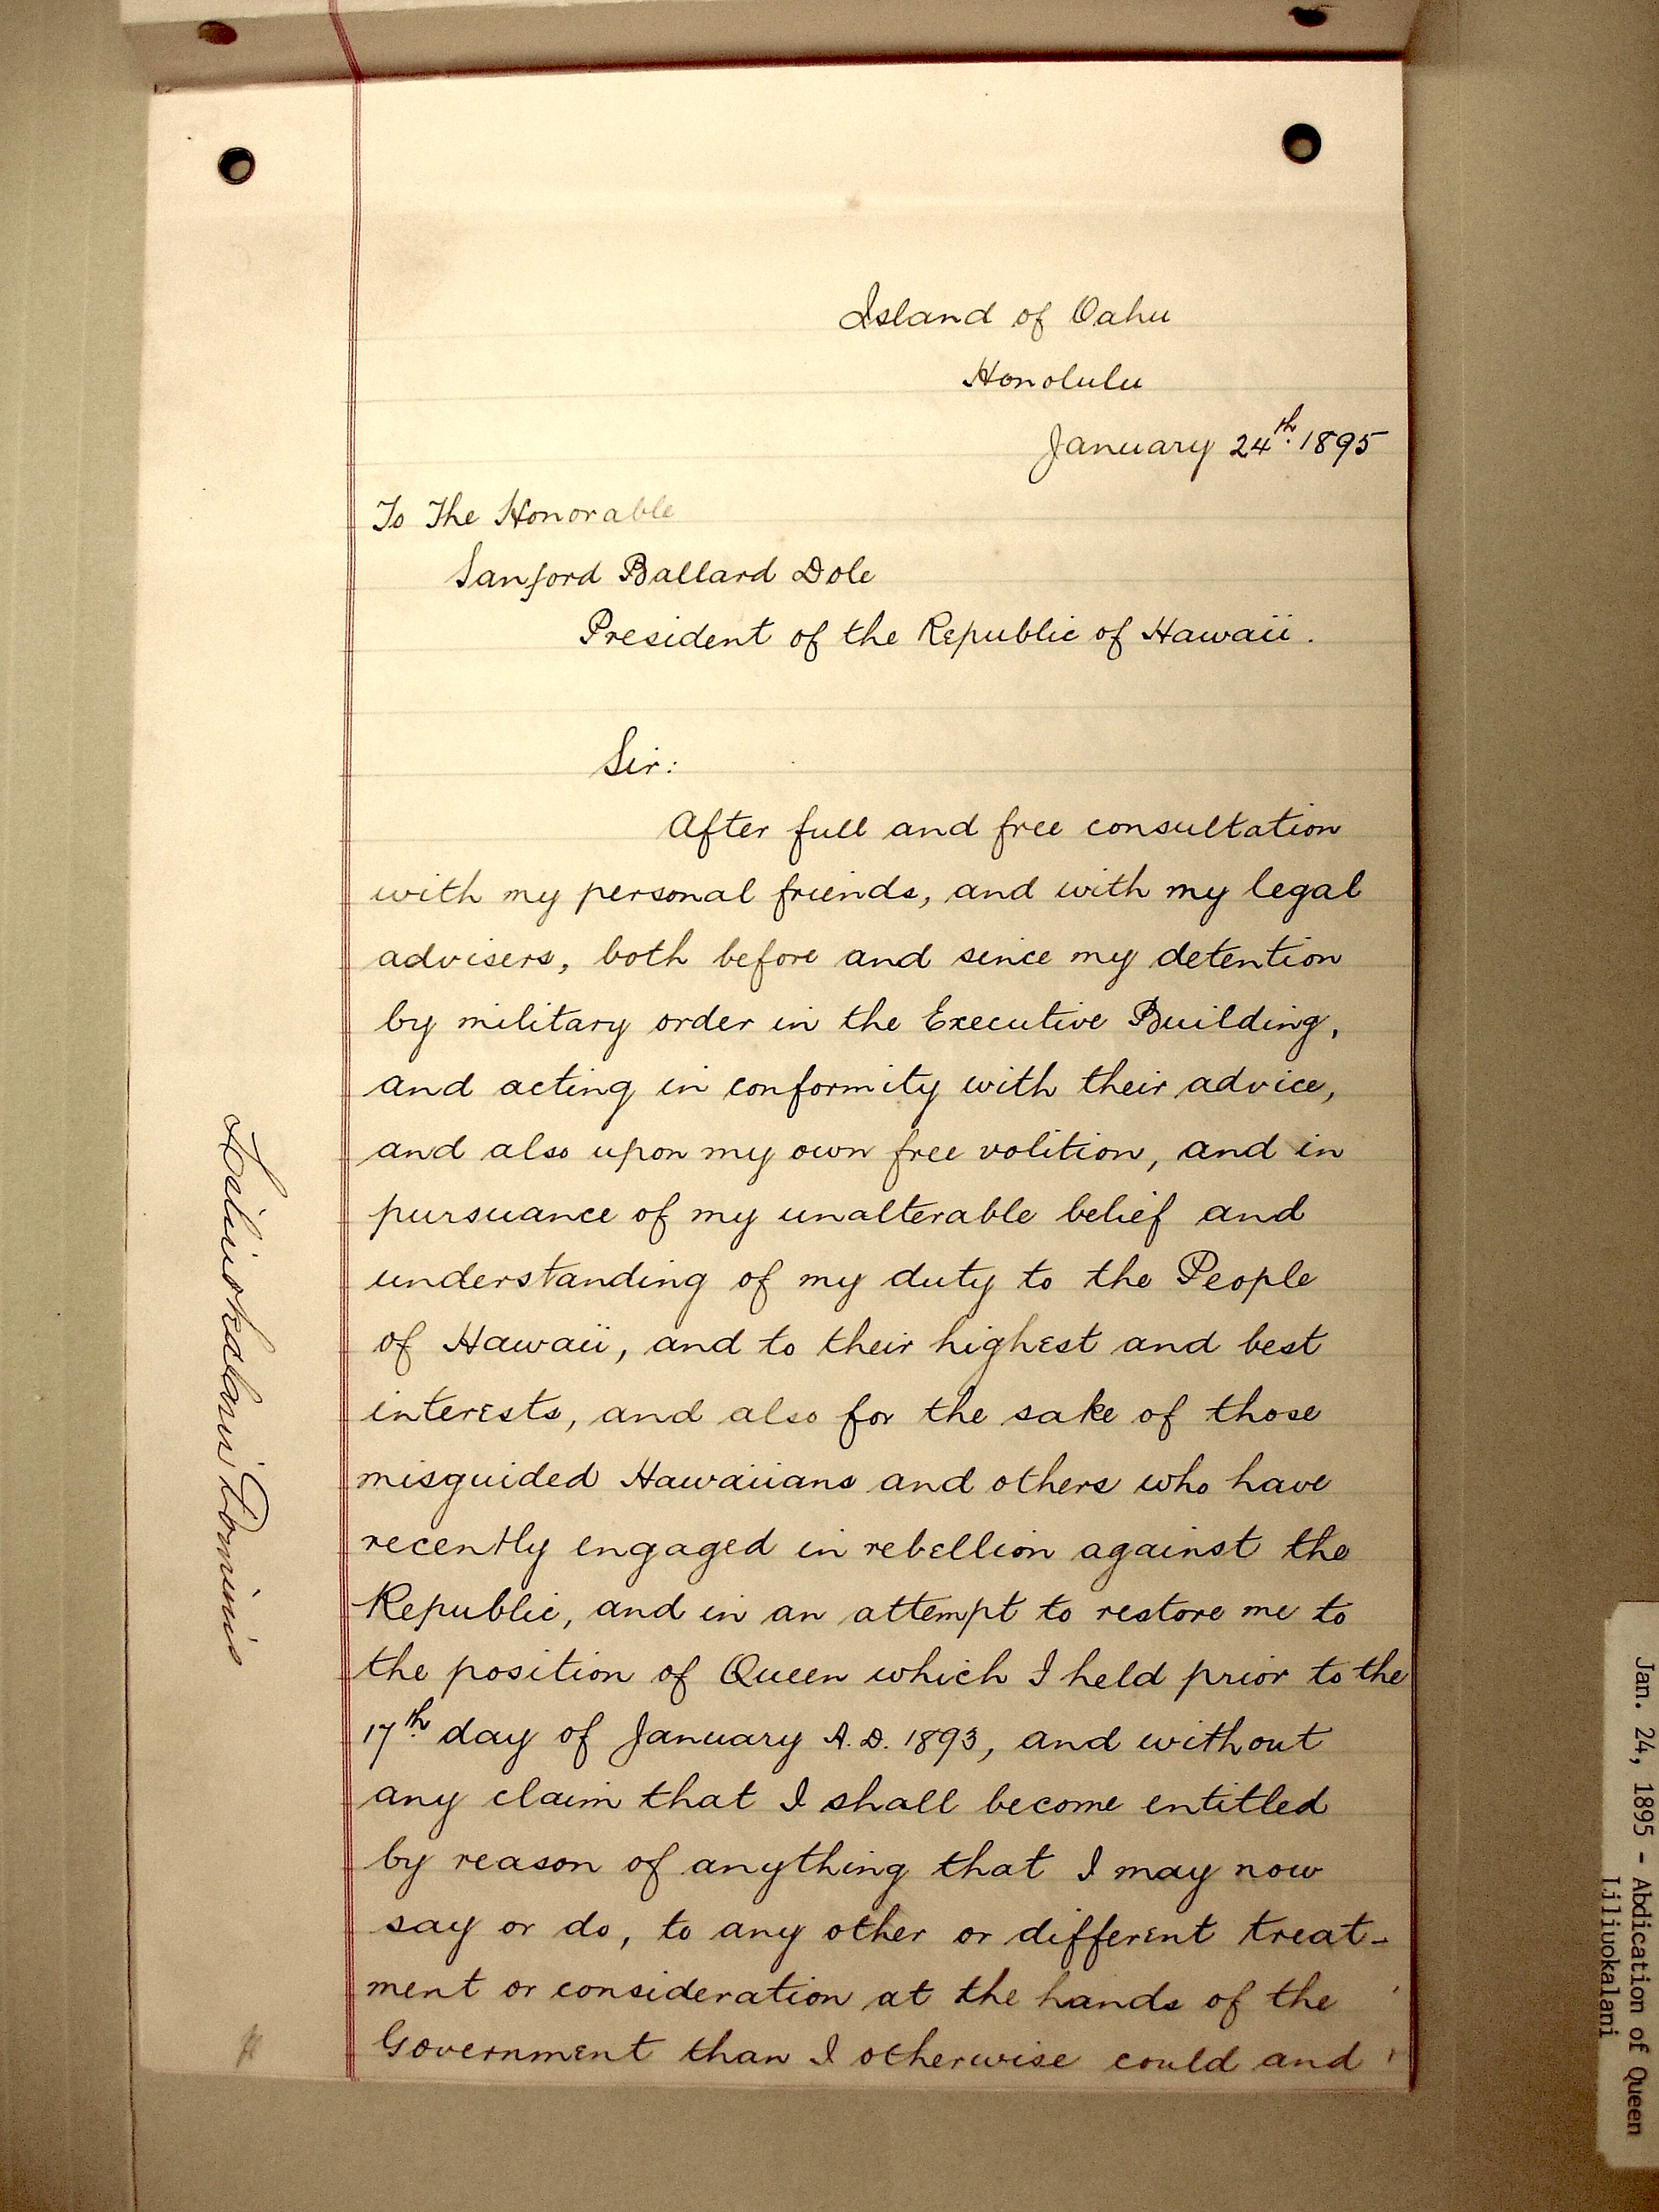 Island of Oahu
Honolulu
January 24th. 1895
To The Honorable
Sanford Ballard Dole
President of the Republic of Hawaii.
Sir:
After full and free consultation
with my personal friends, and with my legal
advisers, both before and since my detention
by military order in the Executive Building,
and acting in conformity with their advice,
and also upon my own free volition, and in
pursuance of my unalterable belief and
understanding of my duty to the People
of Hawaii, and to their highest and best
interests, and also for the sake of those
misguided Hawaiians and others who have
recently engaged in rebellion against the
Republic, and in an attempt to restore me to
the position of Queen which I held prior to the
17th. day of January A.D. 1893, and without
any claim that I shall become entitled
by reason of anything that I may now
say or do, to any other or different treat-
ment or consideration at the hands of the
Government than I otherwise could and
Liliuokalani Dominis
Jan. 24, 1895 - Abdication of Queen
Liliuokalani